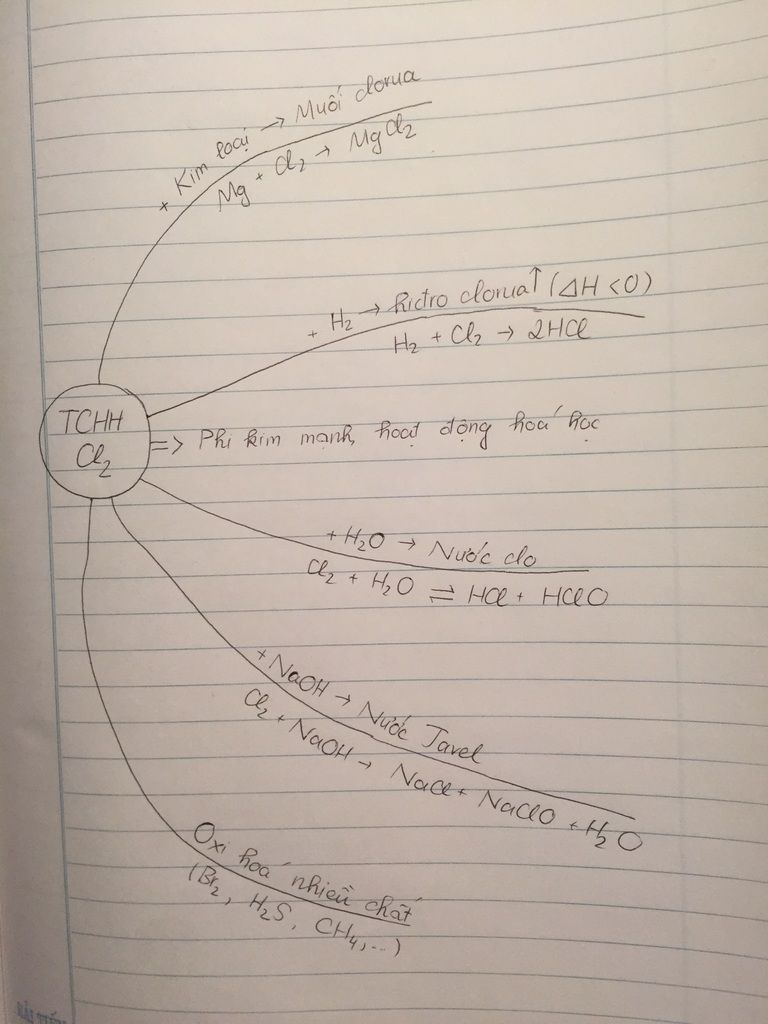 + Kim loại → Muối clorua
Mg + Cl₂ → MgCl₂
+ H₂ → hiđro clorua↑ (ΔH < 0)
H₂ + Cl₂ → 2HCl
TCHH
Cl₂
=> Phi kim mạnh, hoạt động hoá học
+ H₂O → Nước clo
Cl₂ + H₂O ⇌ HCl + HClO
+ NaOH → Nước Javel
Cl₂ + NaOH → NaCl + NaClO + H₂O
Oxi hoá nhiều chất
(Br₂, H₂S, CH₄,...)